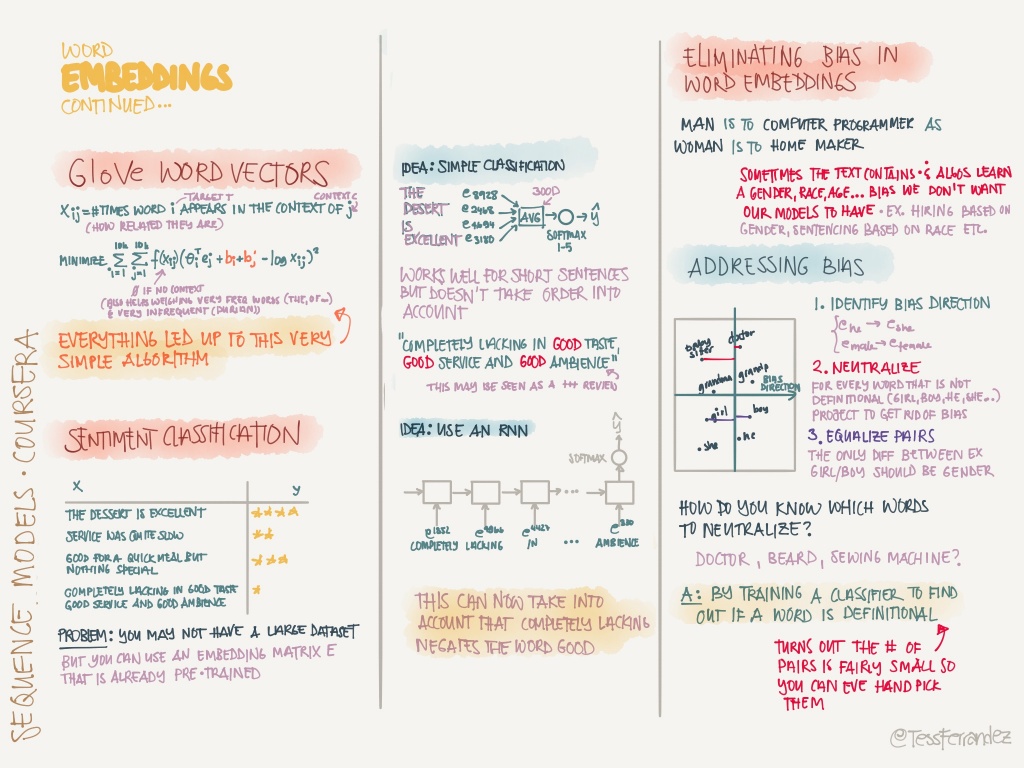 WORD
EMBEDDINGS
CONTINUED...
GloVe WORD VECTORS
TARGET T
CONTEXT C
Xij = #TIMES WORD i APPEARS IN THE CONTEXT OF j
(HOW RELATED THEY ARE)
MINIMIZE 10k Σ i=1 10k Σ j=1 f(Xij)(θiᵀej + bi + bj' - log Xij)²
Ø IF NO CONTEXT
(ALSO HELPS WEIGHING VERY FREQ WORDS (THE, OF...)
& VERY INFREQUENT (DURIAN))
EVERYTHING LED UP TO THIS VERY
SIMPLE ALGORITHM
SENTIMENT CLASSIFICATION
X Y
THE DESSERT IS EXCELLENT ★★★★
SERVICE WAS QUITE SLOW ★★
GOOD FOR A QUICK MEAL BUT
NOTHING SPECIAL ★★★
COMPLETELY LACKING IN GOOD TASTE
GOOD SERVICE AND GOOD AMBIENCE ★
PROBLEM: YOU MAY NOT HAVE A LARGE DATASET
BUT YOU CAN USE AN EMBEDDING MATRIX E
THAT IS ALREADY PRE-TRAINED
SEQUENCE MODELS · COURSERA
IDEA: SIMPLE CLASSIFICATION
THE e8928
DESSERT e2468
IS e4694
EXCELLENT e3180
300D
AVG
ŷ
SOFTMAX
1-5
WORKS WELL FOR SHORT SENTENCES
BUT DOESN'T TAKE ORDER INTO
ACCOUNT
"COMPLETELY LACKING IN GOOD TASTE,
GOOD SERVICE AND GOOD AMBIENCE"
THIS MAY BE SEEN AS A +++ REVIEW
IDEA: USE AN RNN
ŷ
SOFTMAX
...
e1852 e4966 e4427 e330
COMPLETELY LACKING IN ... AMBIENCE
THIS CAN NOW TAKE INTO
ACCOUNT THAT COMPLETELY LACKING
NEGATES THE WORD GOOD
ELIMINATING BIAS IN
WORD EMBEDDINGS
MAN IS TO COMPUTER PROGRAMMER AS
WOMAN IS TO HOME MAKER
SOMETIMES THE TEXT CONTAINS & ALGOS LEARN
A GENDER, RACE, AGE... BIAS WE DON'T WANT
OUR MODELS TO HAVE · EX. HIRING BASED ON
GENDER, SENTENCING BASED ON RACE ETC.
ADDRESSING BIAS
baby
sitter
doctor
grandma
grandp
BIAS
DIRECTION
girl
boy
she
he
1. IDENTIFY BIAS DIRECTION
{ehe → eshe
emale → efemale
2. NEUTRALIZE
FOR EVERY WORD THAT IS NOT
DEFINITIONAL (GIRL, BOY, HE, SHE...)
PROJECT TO GET RID OF BIAS
3. EQUALIZE PAIRS
THE ONLY DIFF BETWEEN EX
GIRL/BOY SHOULD BE GENDER
HOW DO YOU KNOW WHICH WORDS
TO NEUTRALIZE?
DOCTOR, BEARD, SEWING MACHINE?
A: BY TRAINING A CLASSIFIER TO FIND
OUT IF A WORD IS DEFINITIONAL
TURNS OUT THE # OF
PAIRS IS FAIRLY SMALL SO
YOU CAN EVE HAND PICK
THEM
@TessFerrandez